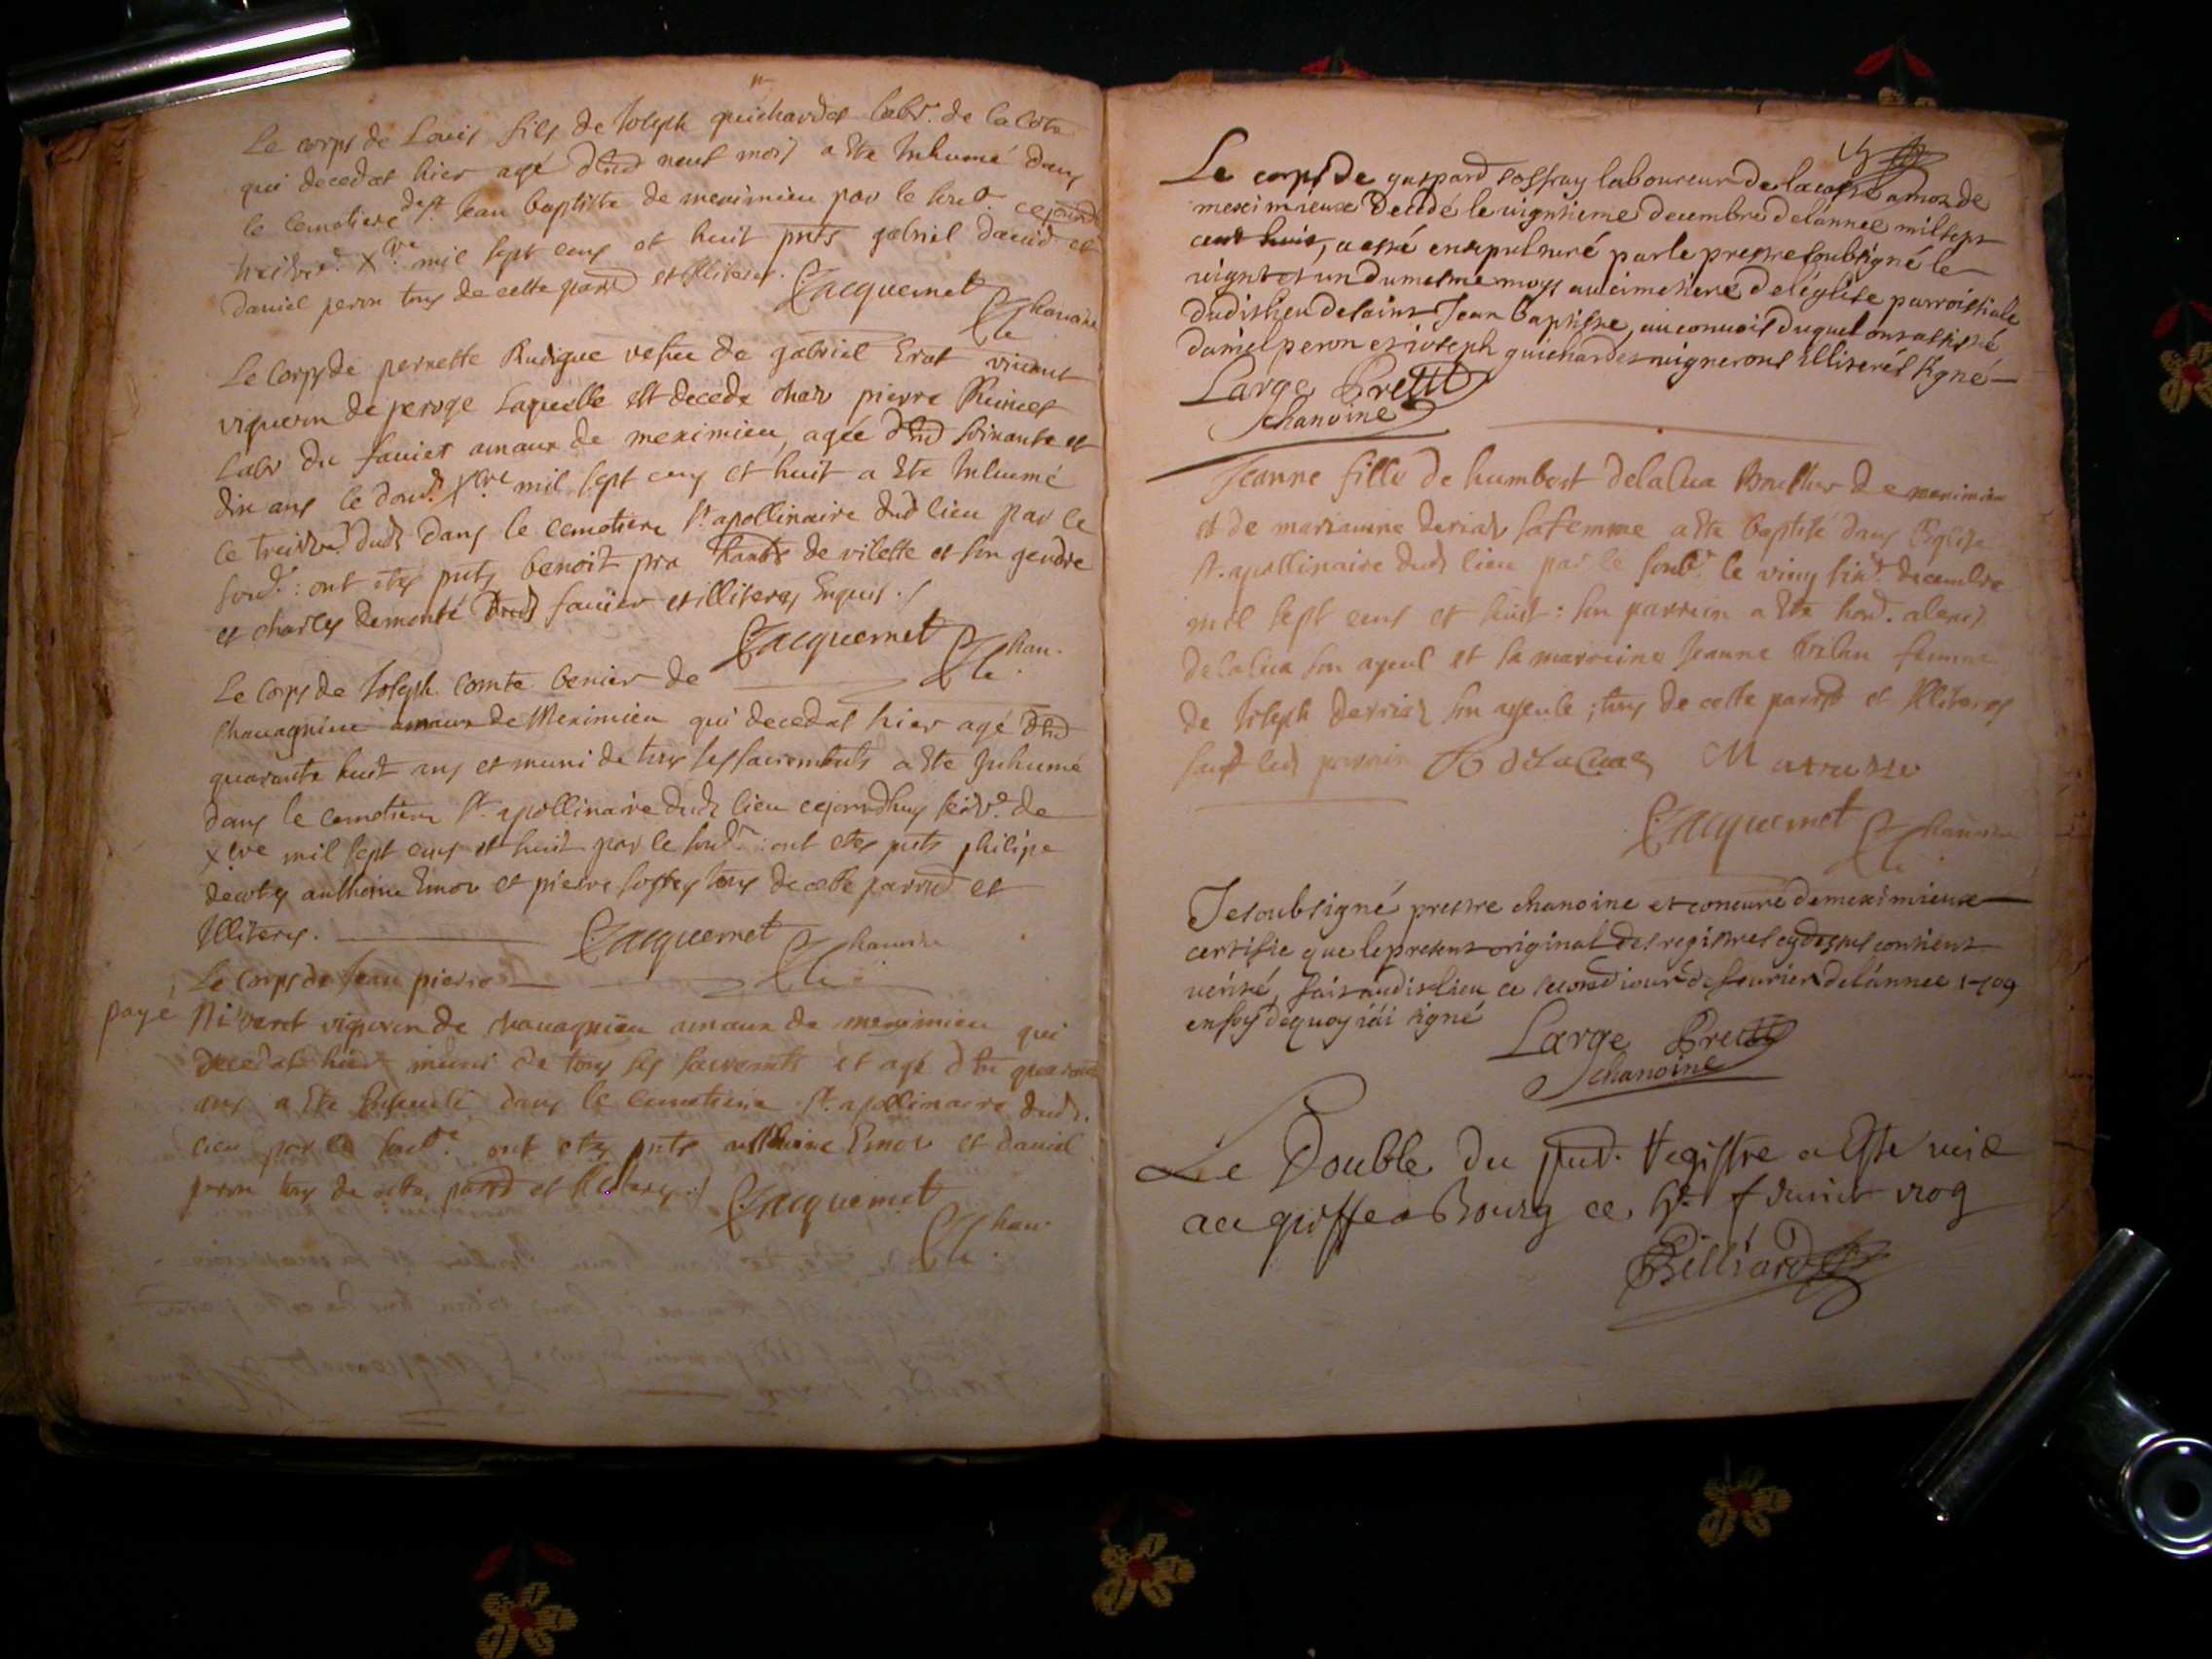 Le corps de Louis fils de Joseph guichardet labr. de la Coste
qui decedat hier agé d'env neuf mois a este Inhumé dans
le Cemetiere de st. Jean baptiste de meximieu par le sous. cejourd
treizie. Xbre mil sept cens et huit pnts gabriel david et
daniel peron tous de cette parr et illiteres.
Jacquemet Chanoine
Le Corps de pernette Rudigue vefue de gabriel Erat vivant
vigneron de peroge Laquelle est decedé chez pierre
Labr du amaux de meximieu, agée d'env soixante et
dix ans le douz. Xbre mil sept cens et huit a este Inhumé
ce treizie. dud dans le Cemetiere st. apollinaire dud lieu par le
sous. : ont etes pnts benoit habt de vilette et son gendre
et charles demonté dud et illiteres Enquis ./
Jacquemet Chan.
Le Corps de Joseph Comte de
Chavagnieu amaux de Meximieu qui decedat hier agé d'env
quarante huit ans et muni de tous les sacrements a este Inhumé
dans le cemetiere st. apollinaire dud lieu cejourdhuy seiz.e de
Xbre mil sept cens et huit par le sous. : ont etes pnts philipe
decotes anthoine Emor et pierre tous de cette parr et
Illiteres. Jacquemet Chanoine
Le Corps de Jean pierre
payé Niveret vigneron de chavagnieu amaux de meximieu qui
decedat hier muni de tous les sacrements et agé d'env quarante
ans a este dans le cemetiere st. apollinaire dud.
lieu par le sous. ont etes pnts anthoine Emor et daniel
peron tous de cette parr et illiteres ./ Jacquemet
Chan.
Le corps de gaspard soffray laboureur de la coste amaz de
meximieux decedé le vigntieme decembre de lannee mil sept
cent huit, a esté ensepulturé par le prestre soubsigné le
vignt et un du mesme moys au cimetiere de léglise parroissiale
dudit lieu de saint Jean baptistre, au convois duquel ont assisté
daniel peron et joseph guichardet vignerons illiterés signé
Large Prestre
chanoine
Jeanne fille de humbert delalua de meximieu
et de marianne derias sa femme a este baptisé dans l'Eglise
st. apollinaire dud lieu par le soubs. le vingt six. decembre
mil sept cens et huit : son parrein a este hon. alexis
delalua son ayeul et sa marreine Jeanne femme
de Joseph derrias son ayeule ; tous de cette parr et Illiteres
sauf led parrain
Jacquemet Chanoine
Je soubsigné prestre chanoine et concuré de meximieux
certifie que le present original des registres cy dessus contient
vérité, fait audit lieu ce second iour de feurier de l'annee 1709
en foy de quoy i'ai signé Large Prestre
chanoine
Le Double du pnt. Registre a Esté mis
au greffe a Bourg ce feurier 1709
Billiard